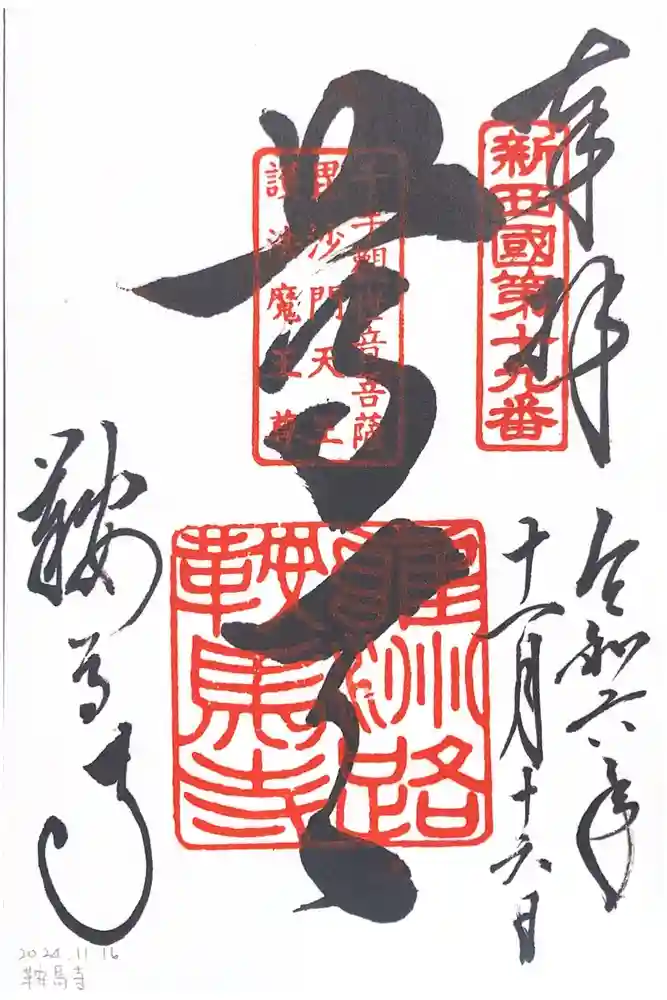 奉拝
新西國第十九番
令和六年
十一月十六日
尊天
千手観世音菩薩
毘沙門天王
護法魔王尊
鞍馬寺
鞍馬寺
2024.11.16
鞍馬寺